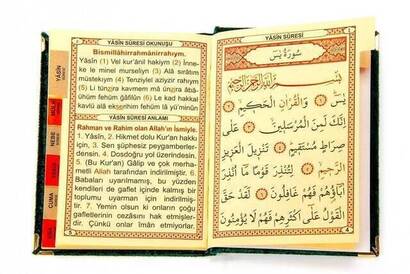 YÂSÎN SÛRESİ OKUNUŞU
Bismillâhirrahmânirrahıym.
Yâsîn (1) Vel kur'ânil hakiym (2) İnne-
ke le minel murseliyn (3) Alâ sırâtım
müstekıym (4) Tenziylel aziyzir rahıym.
(5) Li tünzira kavmem mâ ünzira âbâ-
ühüm fehüm ğâfilûn (6) Le kad hakkal
kavlü alâ ekserihim fehüm lâ yü'minûn
YÂSÎN SÛRESİ ANLAMI
Rahman ve Rahim olan Allah'ın İsmiyle.
1. Yâsîn, 2. Hikmet dolu Kur'an hakkı
için, 3. Sen şüphesiz peygamberler-
densin. 4. Dosdoğru yol üzerindesin.
5. (Bu Kur'an) Gâlip ve çok merha-
metli Allah tarafından indirilmiştir. 6.
Babaları uyarılmamış, bu yüzden
kendileri de gaflet içinde kalmış bir
toplumu uyarman için indirilmiş-
tir. 7. Yemin olsun ki onların çoğu
gafletlerinin cezasını hak etmişler-
dir. Çünkü onlar îman etmiyorlar.
YÂSÎN
NEBE
CUMA
YÂSÎN SÛRESİ
سُورَةُ يٰسٓ
بِسْمِ اللّٰهِ الرَّحْمٰنِ الرَّحِيمِ
يٰسٓ ﴿١﴾ وَالْقُرْاٰنِ الْحَكِيمِ ﴿٢﴾
اِنَّكَ لَمِنَ الْمُرْسَلِينَ ﴿٣﴾ عَلٰى
صِرَاطٍ مُسْتَقِيمٍ ﴿٤﴾ تَنْزِيلَ الْعَزِيزِ
الرَّحِيمِ ﴿٥﴾ لِتُنْذِرَ قَوْمًا مَٓا اُنْذِرَ
اٰبَٓاؤُهُمْ فَهُمْ غَافِلُونَ ﴿٦﴾ لَقَدْ حَقَّ
الْقَوْلُ عَلٰٓى اَكْثَرِهِمْ فَهُمْ لَا يُؤْمِنُونَ
4